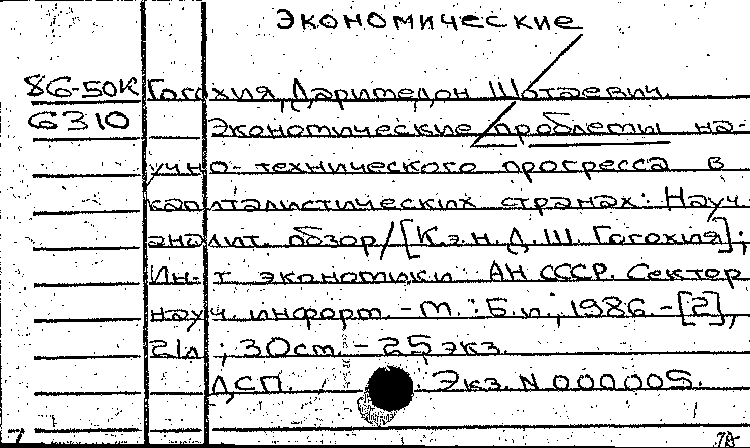 экономические
86-50К Гогохия, Даримедон Шотаевич.
6310 Экономические проблемы на-
учно-технического прогресса в
капиталистических странах: Науч.
аналит. обзор/[К.э.н. Д.Ш. Гогохия];
Ин-т экономики АН СССР. Сектор
науч. информ. - М.: Б.и., 1986. - [2],
21л ; 30см. - 25 экз.
ДСП. Экз. N 000005.